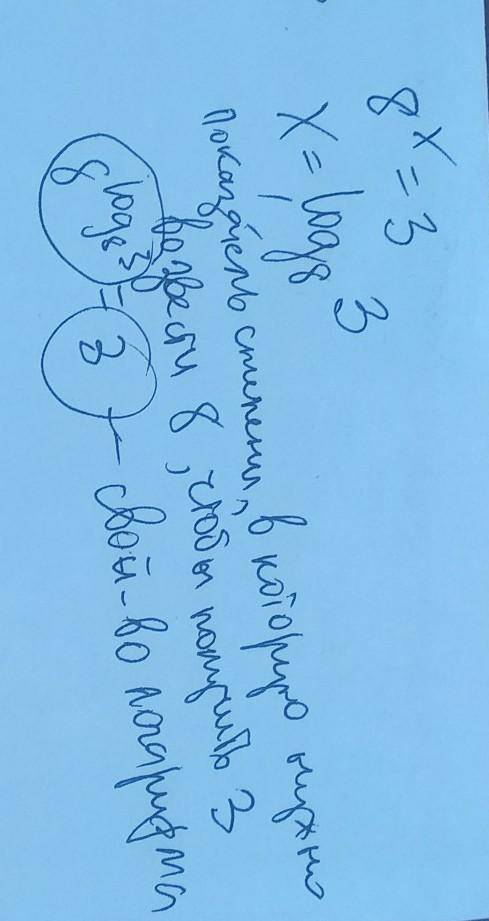 8^x = 3
x = log₈ 3
показатель степени, в которую нужно
возвести 8, чтобы получить 3
8^(log₈ 3) = 3 ← свой-во логарифма